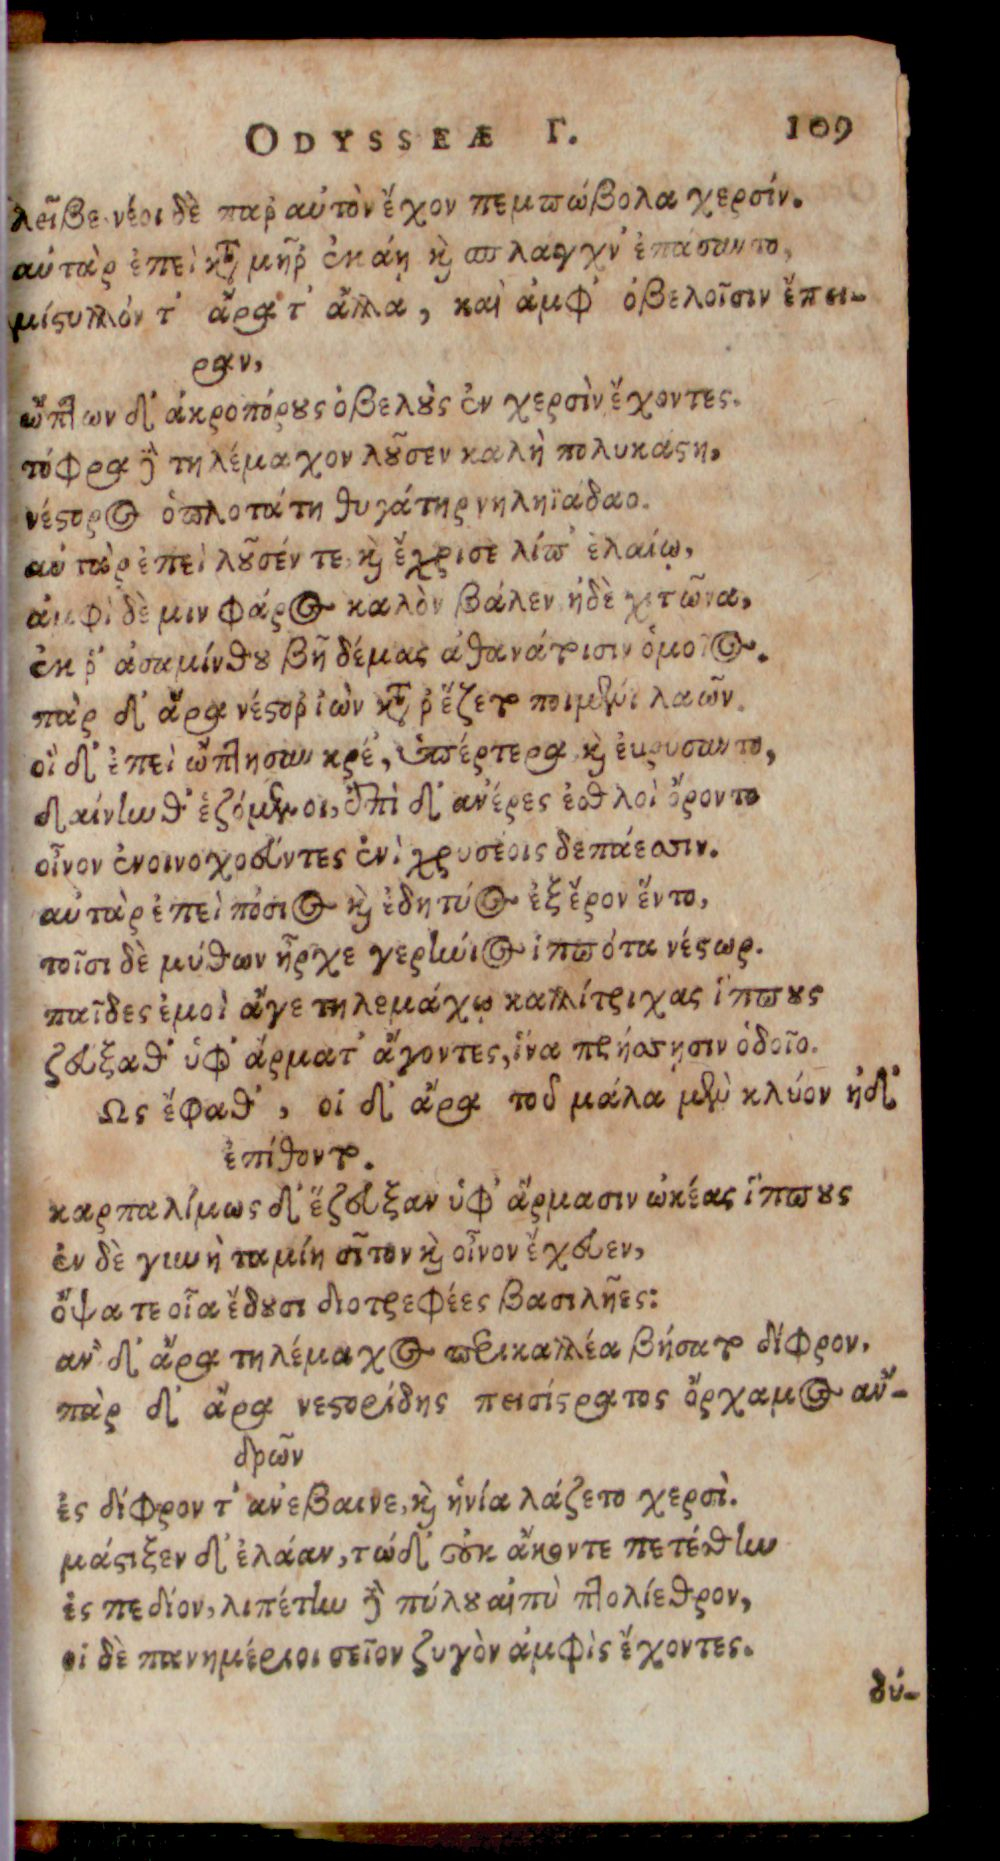 ODYSSEÆ Γ. 109
λεῖβε· νέοι δὲ παρ' αὐτὸν ἔχον πεμπώβολα χερσίν.
αὐτὰρ ἐπεὶ κατὰ μῆρ' ἐκάη καὶ σπλάγχν' ἐπάσαντο,
μίστυλλόν τ' ἄρα τ' ἄλλα, καὶ ἀμφ' ὀβελοῖσιν ἔπει-
ραν,
ὤπτων δ' ἀκροπόρους ὀβελοὺς ἐν χερσὶν ἔχοντες.
τόφρα δὲ τηλέμαχον λοῦσεν καλὴ πολυκάστη,
νέστορος ὁπλοτάτη θυγάτηρ νηληϊάδαο.
αὐτὰρ ἐπεὶ λοῦσέν τε καὶ ἔχρισε λίπ' ἐλαίῳ,
ἀμφὶ δὲ μιν φάρος καλὸν βάλεν ἠδὲ χιτῶνα,
ἐκ ῥ' ἀσαμίνθου βῆ δέμας ἀθανάτοισιν ὁμοῖος.
πὰρ δ' ἄρα νέστορ' ἰὼν κατ' ῥ' ἕζετο ποιμένι λαῶν.
οἱ δ' ἐπεὶ ὤπτησαν κρέ' ὑπέρτερα καὶ ἐκρυσαντο,
δαίνυνθ' ἑζόμενοι, ἐπὶ δ' ἀνέρες ἐσθλοὶ ὄροντο
οἶνον ἐνοινοχοεῦντες ἐνὶ χρυσέοις δεπάεσσιν.
αὐτὰρ ἐπεὶ πόσιος καὶ ἐδητύος ἐξ ἔρον ἕντο,
τοῖσι δὲ μύθων ἦρχε γερήνιος ἱππότα νέστωρ.
παῖδες ἐμοὶ ἄγε τηλεμάχῳ καλλίτριχας ἵππους
ζεύξαθ' ὑφ' ἅρματ' ἄγοντες, ἵνα πρήσσησιν ὁδοῖο.
Ως ἔφαθ', οἱ δ' ἄρα τοῦ μάλα μὲν κλύον ἠδ'
ἐπίθοντο.
καρπαλίμως δ' ἔζευξαν ὑφ' ἅρμασιν ὠκέας ἵππους
ἐν δὲ γυνὴ ταμίη σῖτον καὶ οἶνον ἔχευεν,
ὄψα τε οἷα ἔδουσι διοτρεφέες βασιλῆες:
ἂν δ' ἄρα τηλέμαχος περικαλλέα βήσατο δίφρον.
πὰρ δ' ἄρα νεστορίδης πεισίστρατος ὄρχαμος ἀν-
δρῶν
ἐς δίφρον τ' ἀνέβαινε, καὶ ἡνία λάζετο χερσὶ.
μάστιξεν δ' ἐλάαν, τὼ δ' οὐκ ἄκοντε πετέσθην
ἐς πεδίον, λιπέτην δὲ πύλου αἰπὺ πτολίεθρον,
οἱ δὲ πανημέριοι σεῖον ζυγὸν ἀμφὶς ἔχοντες.
δύ-